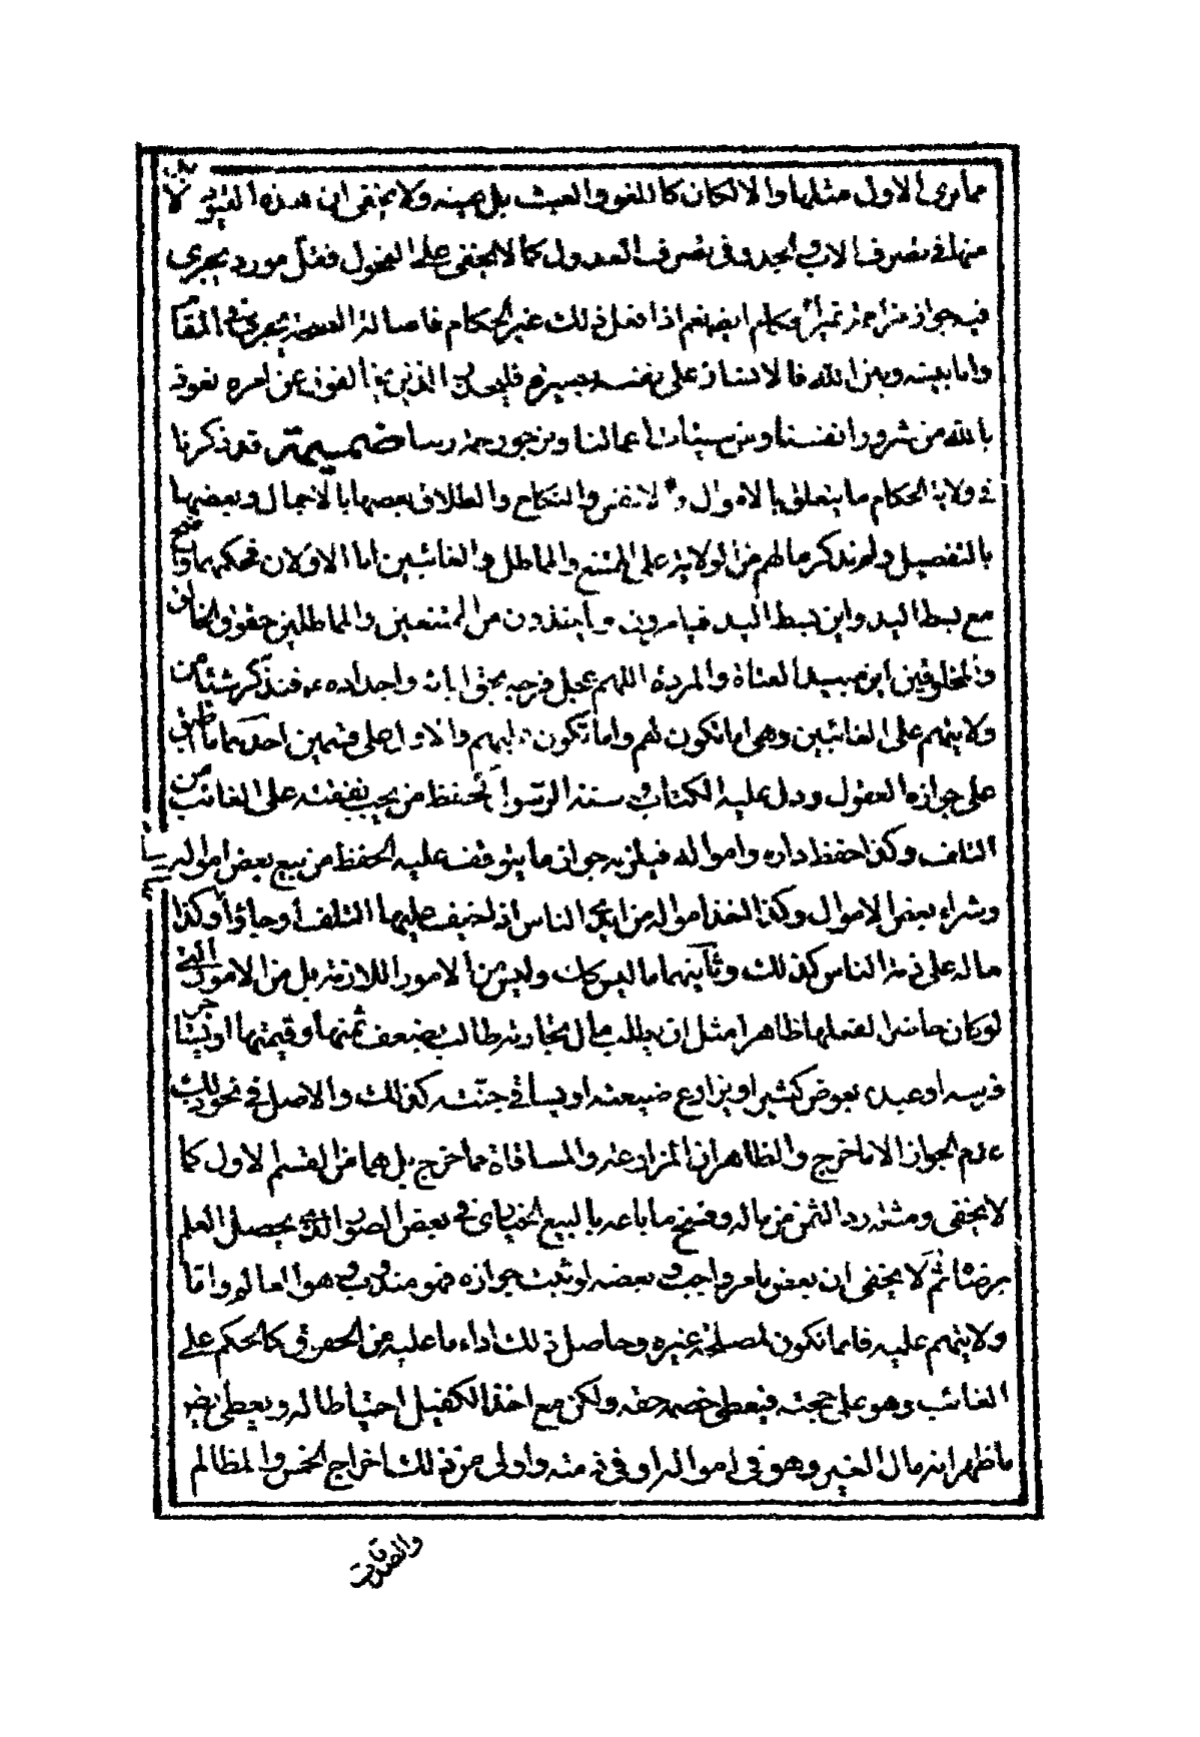 مما يرى الاول مثلها والا لكان كاللغو والعبث بل عينه ولا يخفى ان هذه الفتوى لا
منها في تصرف الاب والجد وفي تصرف العدول كما لا يخفى على الفحول فقل مورد يجرى
فيه جواز مزاحمة الحكام ايضا نعم اذا فعل ذلك غير الحكام فاصالة الصحة يجرى في المقام
واما بينه وبين الله فالانسان على نفسه بصيرة فليحذر الذين يخالفون عن امره نعوذ
بالله من شرور انفسنا ومن سيئات اعمالنا ونرجو رحمة ربنا ضميمة قد ذكرنا
في ولاية الحكام ما يتعلق بالاموال والانفس والنكاح والطلاق بعضها بالاجمال وبعضها
بالتفصيل ولم نذكر مالهم من الولاية على الممتنع والمماطل والغائبين اما الاولان فحكمهما واضح
مع بسط اليد واين بسط اليد فيامرون وياخذون من الممتنعين والمماطلين حقوق الخالق
والمخلوقين اين مبيد العتاة والمردة اللهم عجل فرجه بحق ابائه واجداده فنذكر شيئا من
ولايتهم على الغائبين وهي اما تكون لهم واما تكون عليهم والاول على قسمين احدهما ما اطبق
على جوازه العقول ودل عليه الكتاب وسنة الرسول كحفظ من يجب نفقته على الغائب من
التلف وكذا حفظ داره وامواله فيلزمه جواز ما يتوقف عليه الحفظ من بيع بعض امواله
وشراء بعض الاموال وكذا اخذ امواله من ايدي الناس اذا خيف عليها التلف او جاؤا وكذا
ماله على ذمة الناس كذلك وثانيهما ما ليس كك وليس من الامور اللازمة بل من الامور التي
لو كان حاضرا لفعلها ظاهرا مثل ان يطلب مال تجارته طالب بضعف ثمنها وقيمتها او يستاجر
فرسه او عبده بعوض كثير او يزارع ضيعته او يساقي جنته كذلك والاصل في نحو ذلك
عدم الجواز الا ما خرج والظاهر ان المزارعة والمساقاة مما خرج بل هما من القسم الاول كما
لا يخفى ومثله رد الثمن من ماله وفسخ ما باعه بالبيع الخياري في بعض الصور الذي يحصل العلم
برضاه ثم لا يخفى ان بعض ما مر واجب وبعضه لو ثبت جوازه فهو مندوب وهو العالم واما
ولايتهم عليه فاما تكون لمصلحة غيره وحاصل ذلك اداء ما عليه من الحقوق كالحكم على
الغائب وهو على حجته فيعطي خصمه حقه ولكن مع اخذ الكفيل احتياطا له ويعطي ايضا
ما ظهر انه مال الغير وهو في امواله او في ذمته واولى من ذلك اخراج الخمس والمظالم
والصدقات